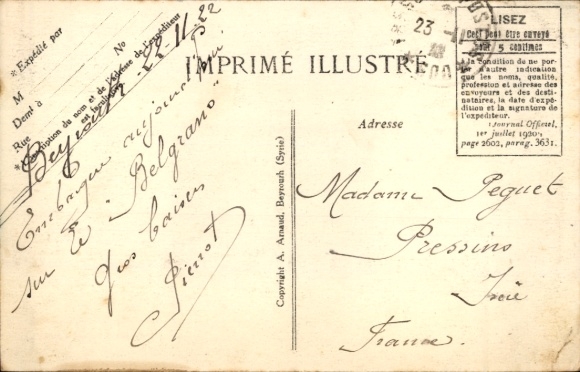 * Expédié par
M
Demt à
Rue
No
* L'inscription du nom et de l'adresse de l'expéditeur
est facultative
Beyrouth 22-11-22
Embarque aujourd'hui
sur le "Belgrano"
Gros baisers
Pierrot
IMPRIMÉ ILLUSTRÉ
23
LISEZ
Ceci peut être envoyé
pour 5 centimes
à la condition de ne por-
ter d'autre indication
que les noms, qualité,
profession et adresse des
envoyeurs et des desti-
nataires, la date d'expé-
dition et la signature de
l'expéditeur.
Journal Officiel,
1er juillet 1920,
page 2602, parag. 3631.
Adresse
Madame Peguet
Pressins
Isère
France.
Copyright A. Arnaud, Beyrouth (Syrie)